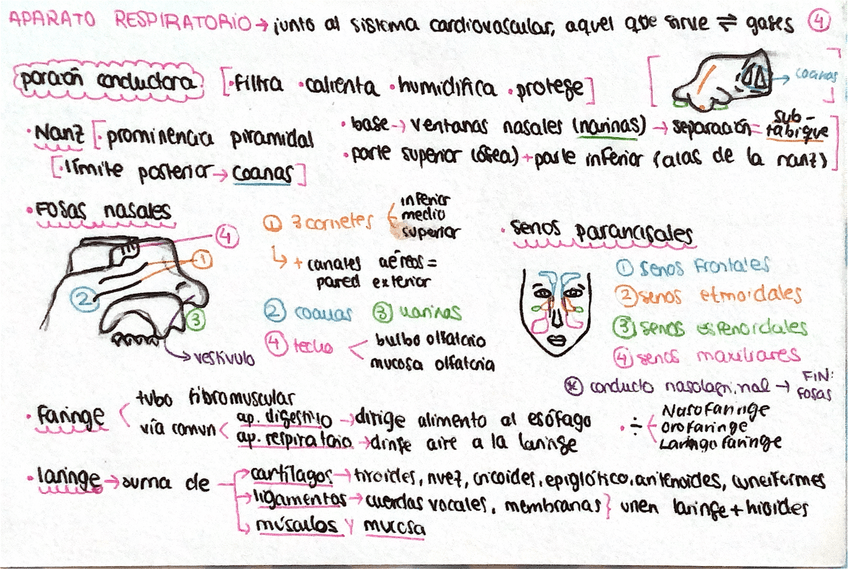 APARATO RESPIRATORIO → junto al sistema cardiovascular, aquel que sirve ⇌ gases ④
porción conductora [·filtra ·calienta ·humidifica ·protege]
→ coanas
·Nariz [·prominencia piramidal
[·límite posterior → coanas]
·base → ventanas nasales (narinas) → separación = sub-tabique
·parte superior (ósea) + parte inferior (alas de la nariz)
·Fosas nasales
④
①
②
③
→ vestívulo
① 3 cornetes
inferior
medio
superior
↳ + canales aéreos =
pared exterior
② coanas ③ narinas
④ techo
bulbo olfatorio
mucosa olfatoria
·senos parancisales
① senos frontales
② senos etmoidales
③ senos esfenoidales
④ senos maxilares
⊛ conducto nasolagrimal → FIN: fosas
·Faringe
tubo fibromuscular
vía comun
ap. digestivo → dirige alimento al esófago
ap. respiratorio → dirige aire a la laringe
·÷
Nasofaringe
orofaringe
Laringofaringe
·laringe → suma de
cartílagos → tiroides, nuez, cricoides, epiglótico, aritenoides, cuneiformes
ligamentos → cuerdas vocales, membranas} unen laringe + hioides
músculos y mucosa